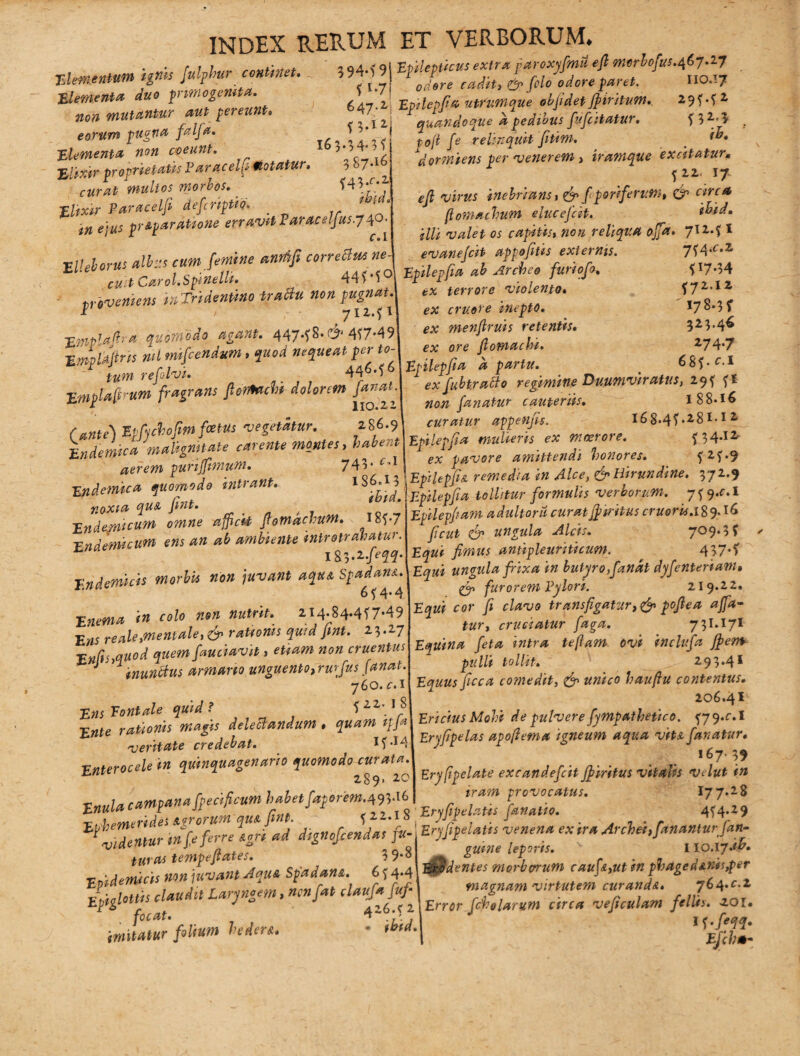 INDEX RERUM ET VERBORUM.
Elementum ignis sulphur continet. 394.59
Elementa duo primogenita. 51.7
non mutantur aut pereunt. 647.2
eorum pugna falsa. 53.12
Elementa non coeunt. 163.34.35
Elixir proprietatis Paracelsi notatur. 387.16
curat multos morbos. 543.c.2
Elixir Paracelsi descriptio. ibid.
in ejus præparatione erravit Paracelsus.740.
c.1
Elleborus albus cum semine annisi correctus ne-
cuit Carol. Spinelli. 445.50
proveniens in Tridentino tractu non pugnat.
712.51
Emplastra quomodo agant. 447.58. & 457.49
Emplastris nil miscendum, quod nequeat per to-
tum resolvi. 446.56
Emplastrum fragrans stomachi dolorem sanat.
110.22
(ante) Epsychosim fœtus vegetatur. 286.9
Endemica malignitate carente montes, habent
aerem purissimum. 743. c.1
Endemica quomodo intrant. 186.13
noxia quæ sint. ibid.
Endemicum omne afficit stomachum. 185.7
Endemicum ens an ab ambiente introtrahatur.
183.2.seqq.
Endemicis morbis non juvant aquæ Spadanæ.
654.4
Enema in colo non nutrit. 214.84.457.49
Ens reale, mentale, & rationis quid sint. 23.27
Ensis, quod quem sauciavit, etiam non cruentus
inunctus armario unguento, rursus sanat.
760.c.1
Ens Fontale quid? 522.18
Ente rationis magis delectandum, quam ipsa
veritate credebat. 15.14
Enterocele in quinquagenario quomodo curata.
289.20
Enula campana specificum habet saporem.493.16
Ephemerides ægrorum quæ sint. 522.18
videntur in se ferre ægri ad dignoscendas fu-
turas tempestates. 39.8
Epidemicis non juvant Aquæ Spadanæ. 654.4
Epiglottis claudit Laryngem, non sat clausa suf-
focat. 426.52
imitatur folium hederæ. ibid.
Epilepticus extra paroxysmũ est morbosus.467.27
odore cadit, & solo odore paret. 110.17
Epilepsia utrumque obsidet spiritum. 295.52
quandoque a pedibus suscitatur. 532.3
post se relinquit sitim. ib.
dormiens per venerem, iramque excitatur.
522. 17
est virus inebrians, & soporiferum, & circa
stomachum elucescit. ibid.
illi valet os capitis, non reliqua ossa. 712.51
evanescit appositis externis. 754.c.2
Epilepsia ab Archeo furioso. 517.34
ex terrore violento. 572.12
ex cruore inepto. 178.35
ex menstruis retentis. 323.46
ex ore stomachi. 274.7
Epilepsia à partu. 685.c.1
ex subtracto regimine Duumviratus, 295 51
non sanatur cauteriis. 188.16
curatur appensis. 168.45.281.12
Epilepsia mulieris ex mœrore. 534.12
ex pavore amittendi honores. 525.9
Epilepsiæ remedia in Alce, & Hirundine. 372.9
Epilepsia tollitur formulis verborum. 759.c.1
Epilepsiam adultorũ curat spiritus cruoris.189.16
sicut & ungula Alcis. 709.35
Equi fimus antipleuriticum. 437.5
Equi ungula frixa in butyro, sanat dysenteriam,
& furorem Pylori. 219.22.
Equi cor si clavo transfigatur, & postea assa-
tur, cruciatur saga. 731.17
Equina seta intra testam ovi inclusa spem
pulli tollit. 293.41
Equus sicca comedit, & unico haustu contentus.
206.41
Ericius Mohi de pulvere sympathetico. 579.c.1
Erysipelas apostema igneum aqua vitæ sanatur.
167.39
Erysipelate excandescit spiritus vitalis velut in
iram provocatus. 177.28
Erysipelatis sanatio. 454.29
Erysipelatis venena ex ira Archei, sanantur san-
guine leporis. 110.17.ib.
dentes morborum causæ, ut in phagedænis, per
magnam virtutem curandæ. 764.c.2
Error scholarum circa vesiculam fellis. 201.
15.seqq.
Escha-